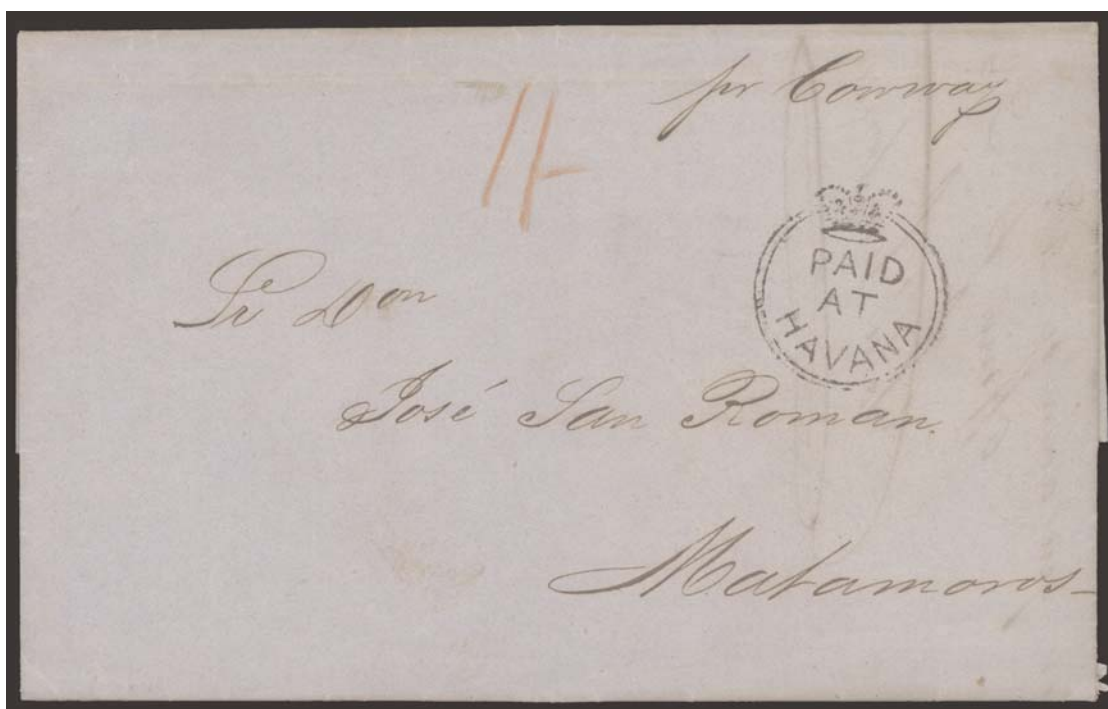 pr Conway
1/-
PAID
AT
HAVANA
Sr Don
José San Roman.
Matamoros-